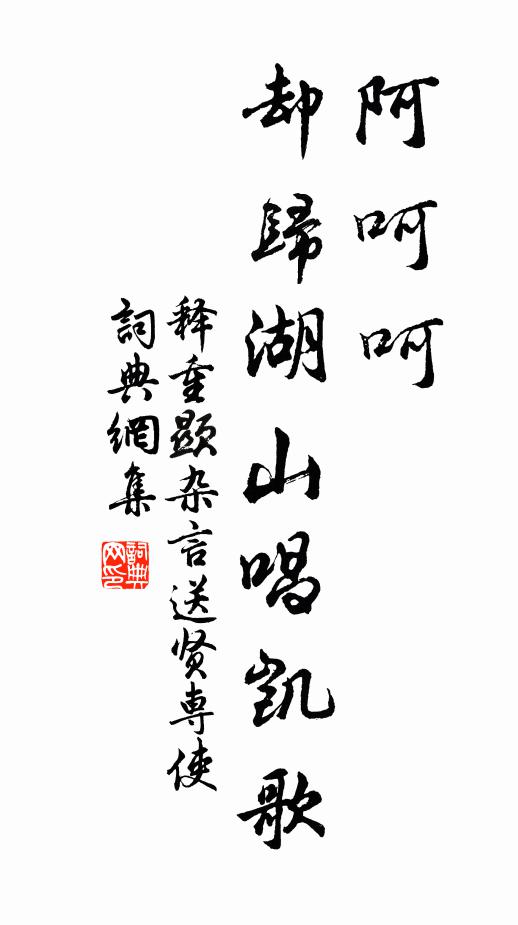 阿呵呵
却歸湖山唱凱歌
释重顯杂言送贤專使
詞典網集
詞典网印